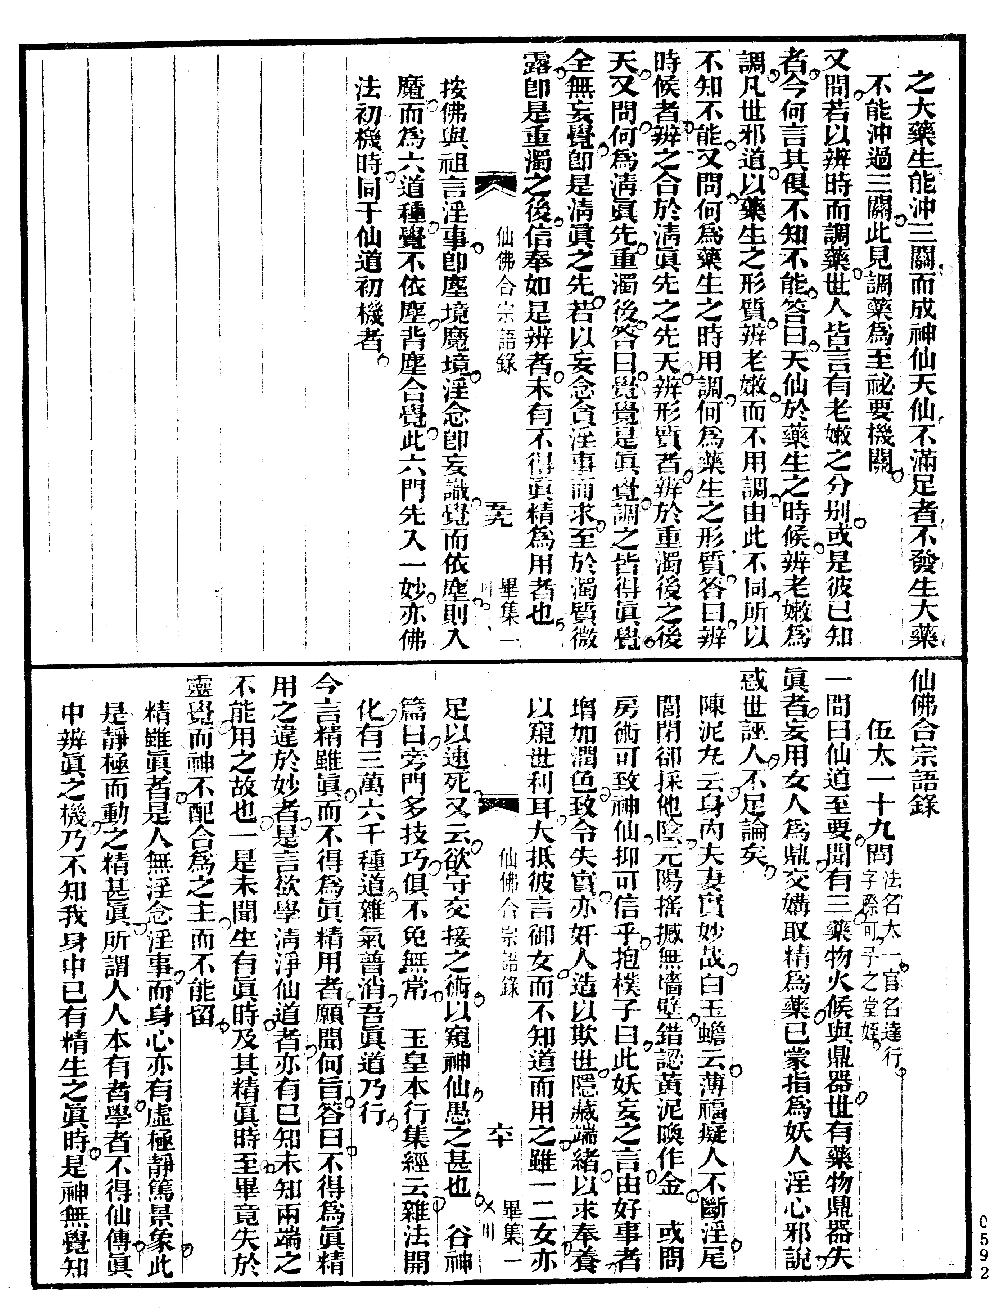 之大藥生能沖三關而成神仙天仙不滿足者不發生大藥
不能沖過三關此見調藥爲至祕要機關
又問若以辨時而調藥世人皆言有老嫩之分别或是彼已知
者今何言其俱不知不能答曰天仙於藥生之時候辨老嫩爲
調凡世邪道以藥生之形質辨老嫩而不用調由此不同所以
不知不能又問何爲藥生之時用調何爲藥生之形質答曰辨
時候者辨之合於淸眞先之先天辨形質者辨於重濁後之後
天又問何爲淸眞先重濁後答曰覺覺是眞覺調之皆得眞覺
全無妄覺卽是淸眞之先若以妄念貪淫事而求至於濁質微
露卽是重濁之後信奉如是辨者未有不得眞精爲用者也
仙佛合宗語錄
五九
畢集一
按佛與祖言淫事卽塵境魔境淫念卽妄識覺而依塵則入
魔而爲六道種覺不依塵背塵合覺此六門先入一妙亦佛
法初機時同于仙道初機者
仙佛合宗語錄
伍太一十九問
法名太一官名達行
字際可予之堂姪
一問曰仙道至要聞有三藥物火候與鼎器世有藥物鼎器失
眞者妄用女人爲鼎交媾取精爲藥已蒙指爲妖人淫心邪說
惑世誣人不足論矣
陳泥丸云身內夫妻實妙哉白玉蟾云薄福癡人不斷淫尾
閭閉卻採他陰元陽搖撼無墻壁錯認黃泥喚作金 或問
房術可致神仙抑可信乎抱樸子曰此妖妄之言由好事者
增加潤色致令失實亦奸人造以欺世隱藏端緒以求奉養
以窺世利耳大抵彼言御女而不知道而用之雖一二女亦
仙佛合宗語錄
六十
畢集一
足以速死又云欲守交接之術以窺神仙愚之甚也 谷神
篇曰旁門多技巧俱不免無常 玉皇本行集經云雜法開
化有三萬六千種道雜氣普消吾眞道乃行
今言精雖眞而不得爲眞精用者願聞何旨答曰不得爲眞精
用之違於妙者是言欲學淸淨仙道者亦有已知未知兩端之
不能用之故也一是未聞生有眞時及其精眞時至畢竟失於
靈覺而神不配合爲之主而不能留
精雖眞者是人無淫念淫事而身心亦有虛極靜篤景象此
是靜極而動之精甚眞所謂人人本有者學者不得仙傳眞
中辨眞之機乃不知我身中已有精生之眞時是神無覺知
0592